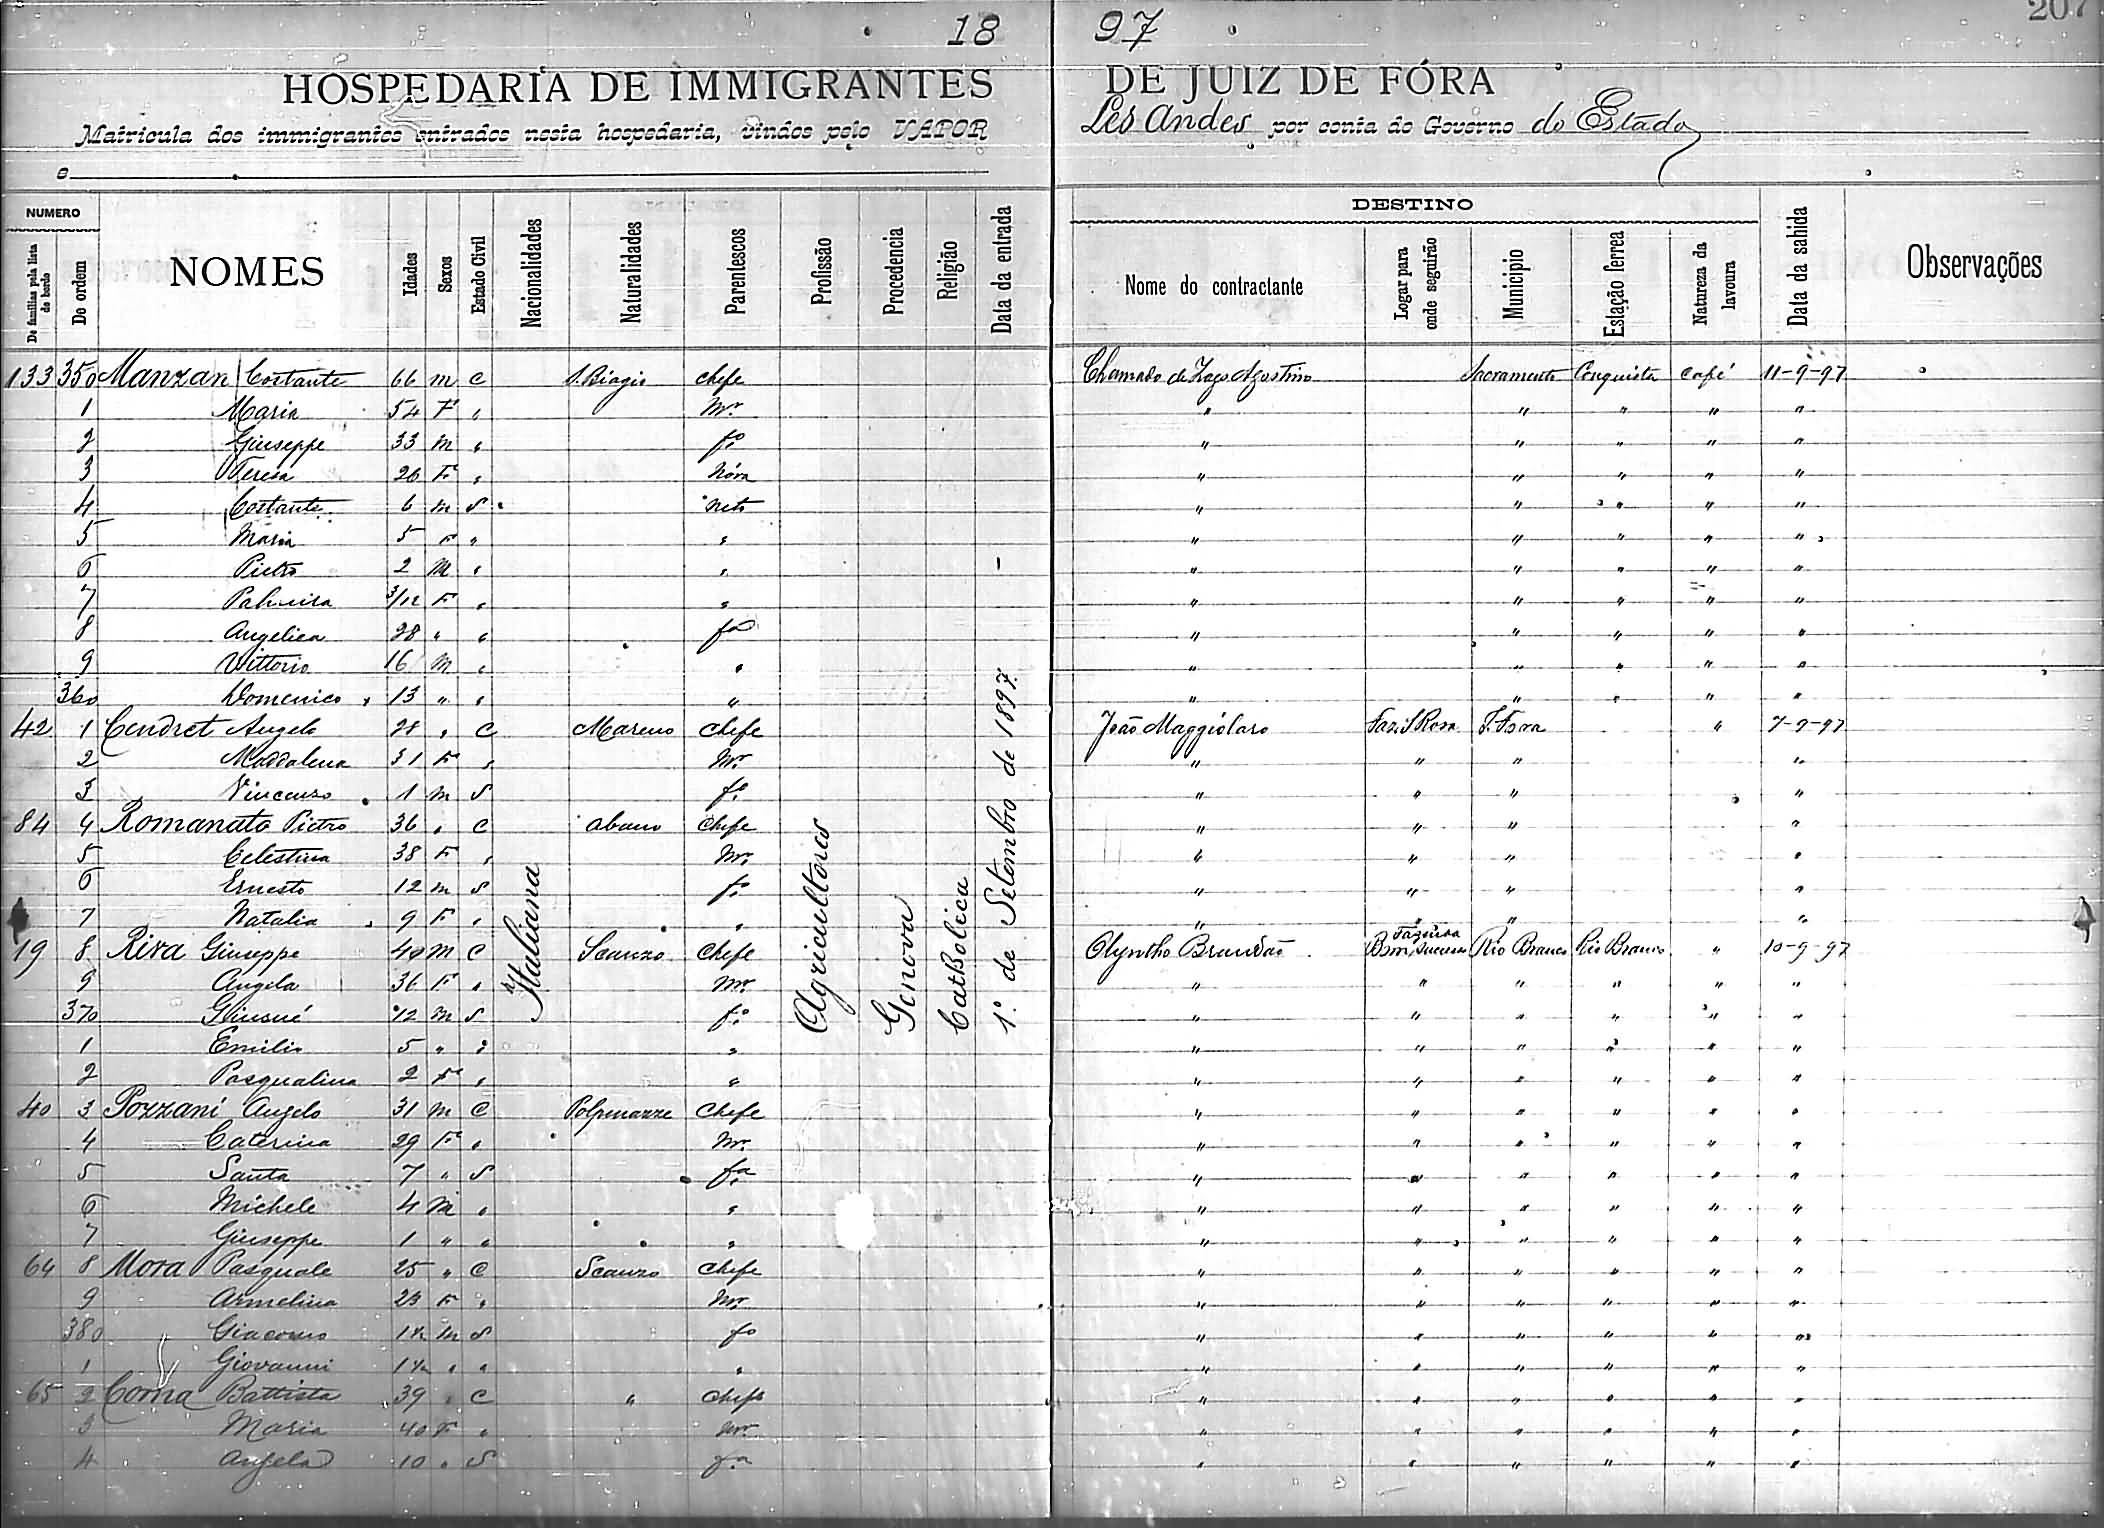 18 97
207
HOSPEDARIA DE IMMIGRANTES DE JUIZ DE FÓRA
Matricula dos immigrantes entrados nesta hospedaria, vindos pelo VAPOR Les Andes por conta do Governo do Estado
e
NUMERO
De familias pela lista de bordo
De ordem
NOMES
Idades
Sexos
Estado Civil
Nacionalidades
Naturalidades
Parentescos
Profissão
Procedencia
Religião
Data da entrada
DESTINO
Nome do contractante
Logar para onde seguirão
Municipio
Estação ferrea
Natureza da lavoura
Data da sahida
Observações
Italiana
Agricultores
Genova
Catholica
1º de Setembro de 1897
133 350 Manzan Costante 66 m C S. Biagio chefe Chamado de Zago Agostino Sacramento Conquista Café 11-9-97
1 Maria 54 F " Mr. " " " " "
2 Giuseppe 33 m " fo. " " " " "
3 Teresa 26 F " Nóra " " " " "
4 Costante 6 m S neto " " " " "
5 Maria 5 F " " " " " " "
6 Pietro 2 M " " " " " " "
7 Palmira 3/12 F " " " " " " "
8 Angelica 28 " " fa " " " " "
9 Vittorio 16 M " " " " " " "
360 Domenico 13 " " " " " " " "
42 1 Cendret Angelo 28 " C Mareno Chefe João Maggiolaro Faz. S Rosa J. Fora " 7-9-97
2 Maddalena 31 F " Mr. " " " "
3 Vincenzo 1 m S fo. " " " "
84 4 Romanato Pietro 36 " C abano Chefe " " " "
5 Celestina 38 F " Mr. " " " "
6 Ernesto 12 m S fo. " " " "
7 Natalia 9 F " " " " " "
19 8 Riva Giuseppe 40 m C Scanzo Chefe Olyntho Brandão Fazenda Bom Successo Rio Branco Rio Branco " 10-9-97
9 Angela 36 F " Mr. " " " " " "
370 Giosué 12 m S fo. " " " " " "
1 Emilio 5 " " " " " " " " "
2 Pasqualina 2 F " " " " " " " "
40 3 Pozzani Angelo 31 m C Polpenazze Chefe " " " " " "
4 Caterina 29 F " Mr. " " " " " "
5 Santa 7 " S fa. " " " " " "
6 Michele 4 M " " " " " " " "
7 Giuseppe 1 " " " " " " " " "
64 8 Mora Pasquale 25 " C Scanzo Chefe " " " " " "
9 Armelina 23 F " Mr. " " " " " "
380 Giacomo m S fo " " " " " "
1 Giovanni " " " " " " " " "
65 2 Coma Battista 39 " C " Chefe " " " " " "
3 Maria 40 F " Mr. " " " " " "
4 Angela 10 " S fa " " " " " "